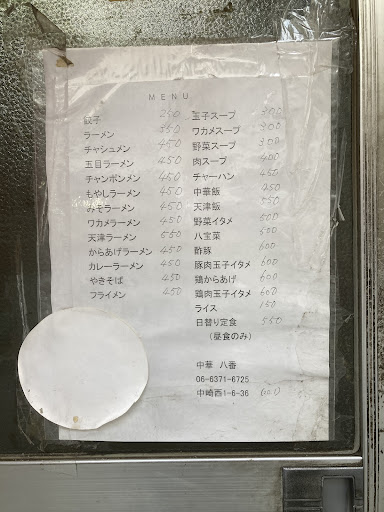 MENU
餃子 250
ラーメン 550
チャシュメン 450
五目ラーメン 450
チャンポンメン 450
もやしラーメン 450
みそラーメン 450
ワカメラーメン 450
天津ラーメン 550
からあげラーメン 450
カレーラーメン 450
やきそば 450
フライメン 450
玉子スープ 300
ワカメスープ 300
野菜スープ 300
肉スープ 400
チャーハン 450
中華飯 450
天津飯 550
野菜イタメ 500
八宝菜 500
酢豚 600
豚肉玉子イタメ 600
鶏からあげ 600
鶏肉玉子イタメ 600
ライス 150
日替り定食 550
(昼食のみ)
中華 八番
06-6371-6725
中崎西1-6-36